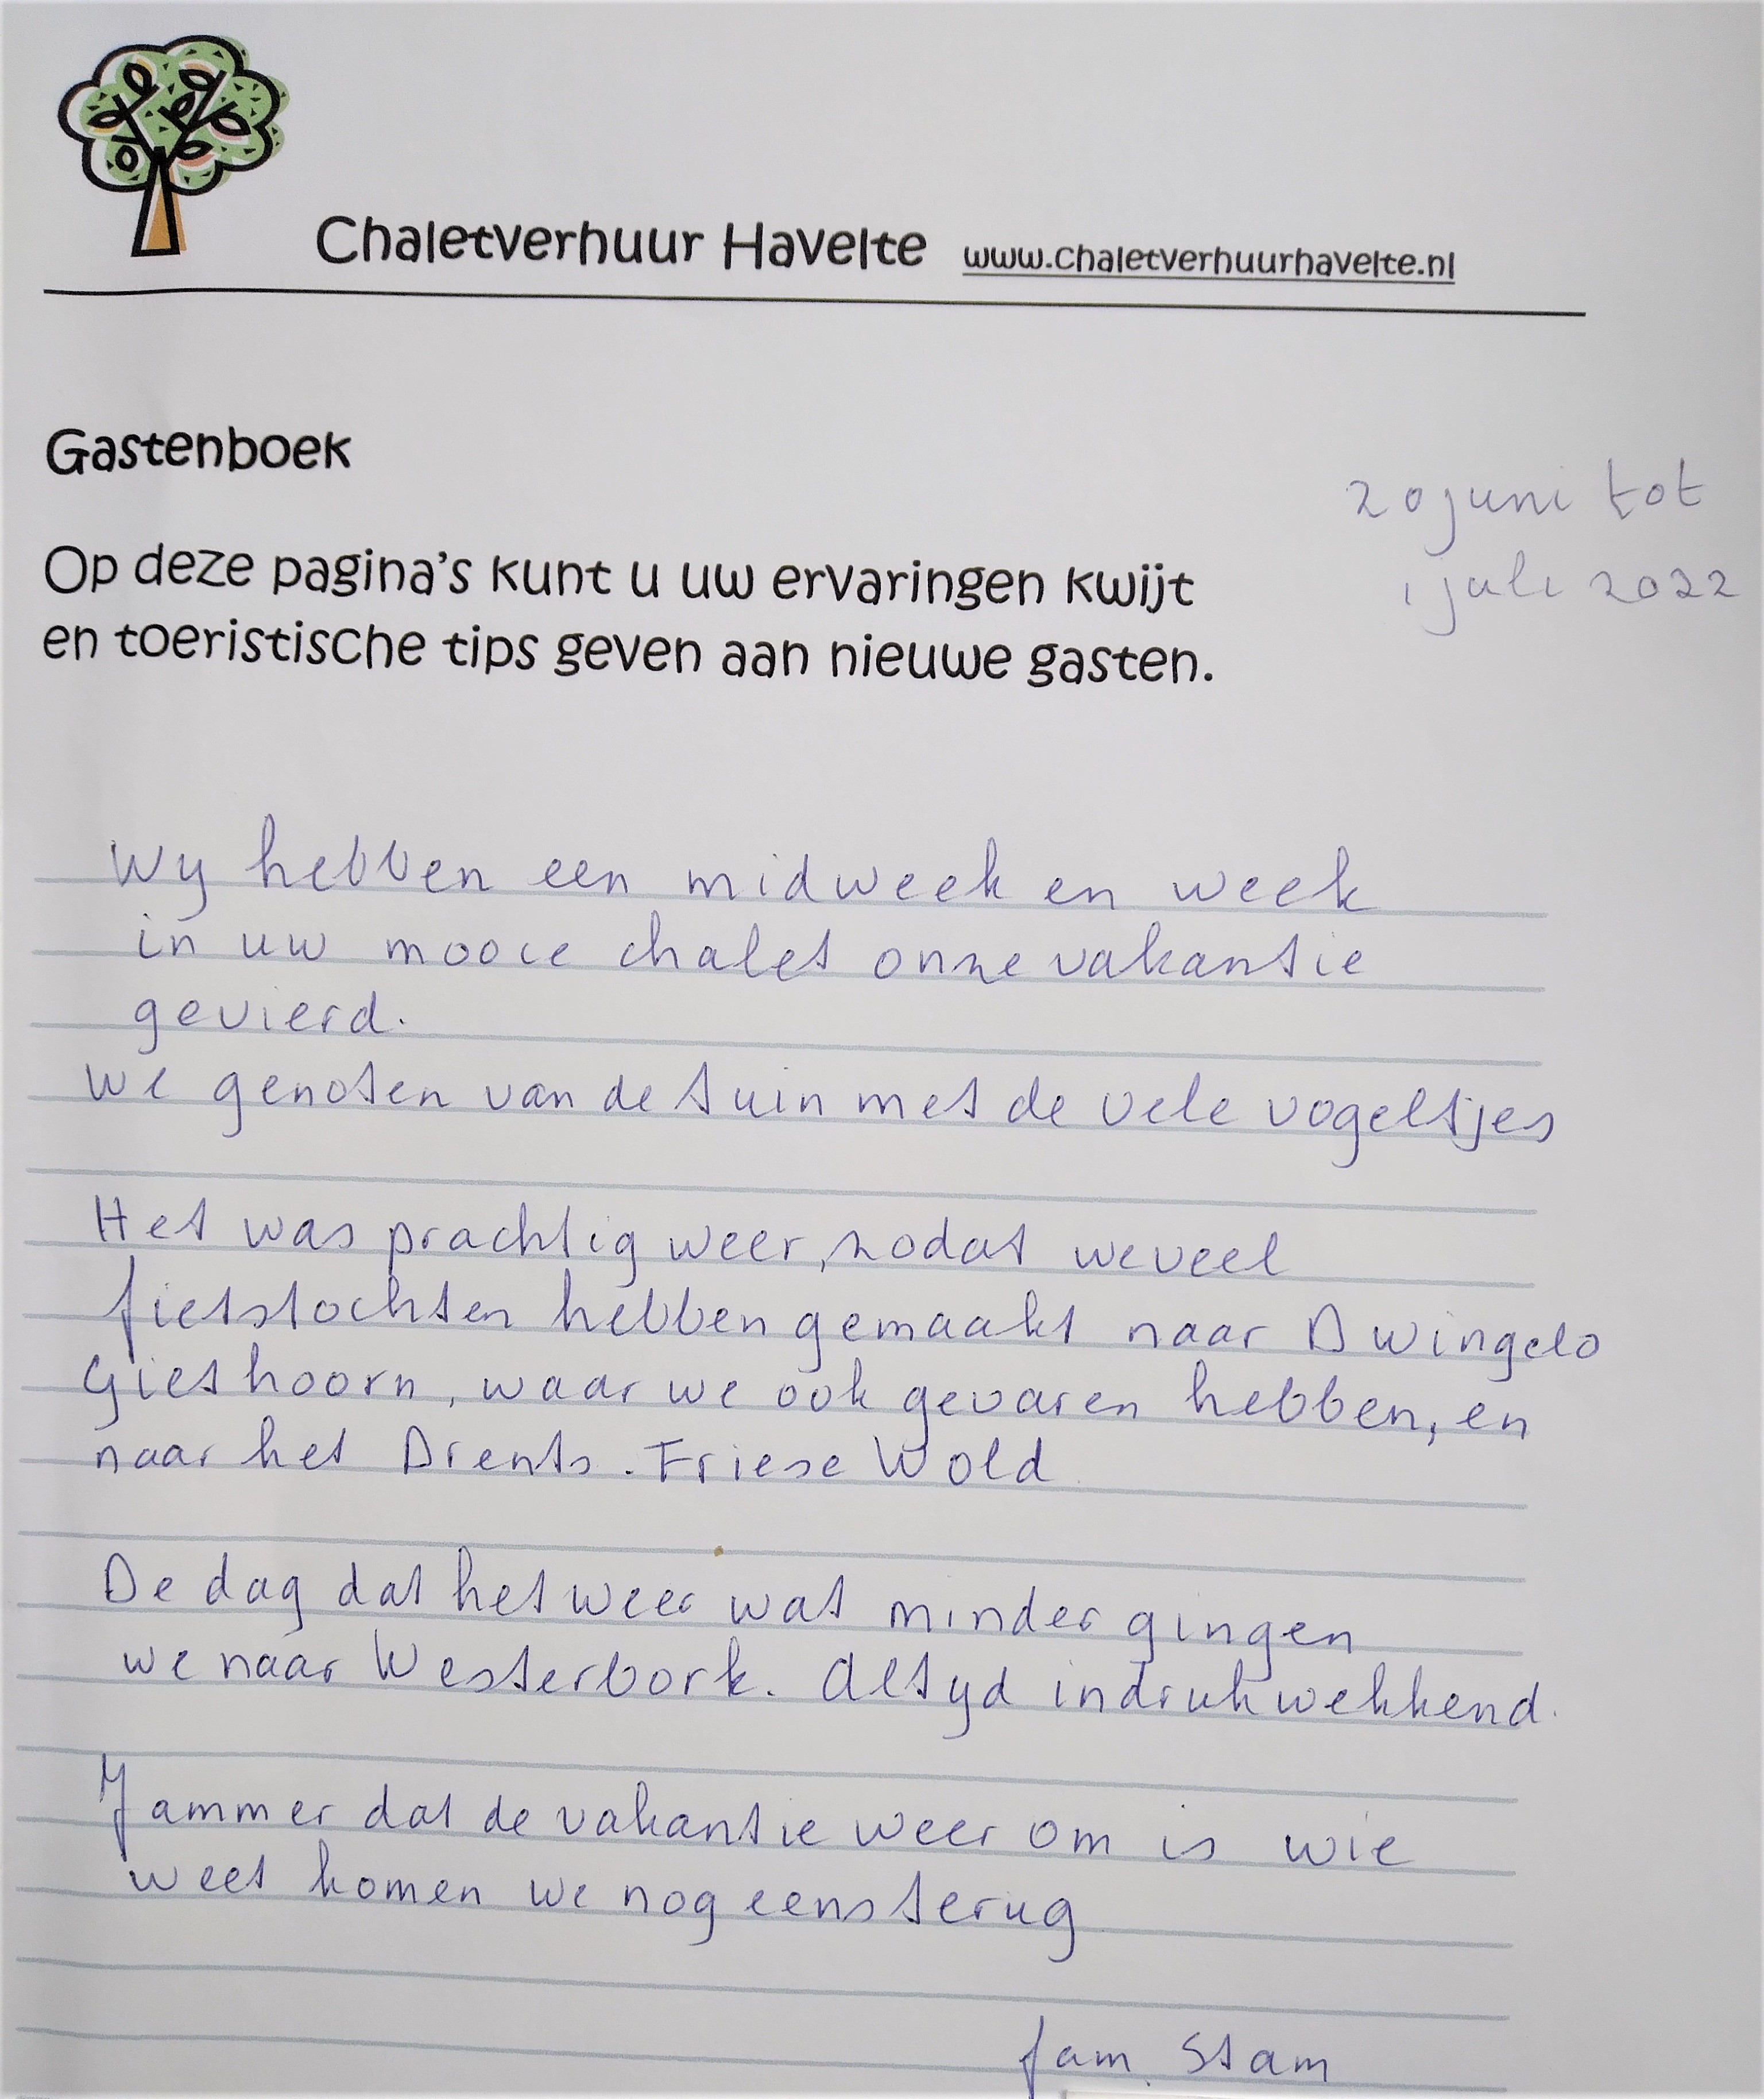 Chaletverhuur Havelte www.chaletverhuurhavelte.nl
Gastenboek
20 juni tot
1 juli 2022
Op deze pagina's kunt u uw ervaringen kwijt
en toeristische tips geven aan nieuwe gasten.
Wy hebben een midweek en week
in uw mooie chalet onze vakantie
gevierd.
We genoten van de tuin met de vele vogeltjes
Het was prachtig weer, zodat we veel
fietstochten hebben gemaakt naar Dwingelo
Giethoorn, waar we ook gevaren hebben, en
naar het Drents-Friese Wold
De dag dat het weer wat minder gingen
we naar Westerbork. Altyd indrukwekkend.
Jammer dat de vakantie weer om is wie
weet komen we nog eens terug
fam. Stam